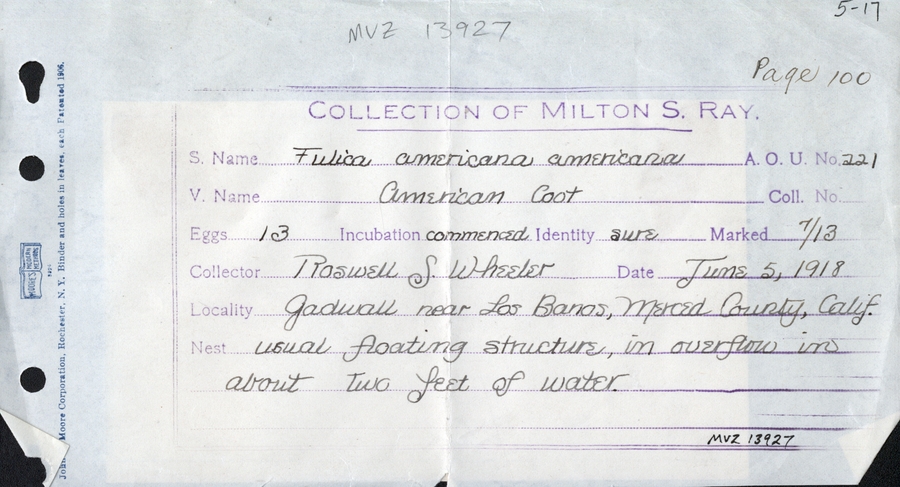 5-17
MVZ 13927
Page 100
COLLECTION OF MILTON S. RAY.
S. Name Fulica americana americana A. O. U. No. 221
V. Name American Coot Coll. No.
Eggs 13 Incubation commenced Identity sure Marked 7/13
Collector Roswell S. Wheeler Date June 5, 1918
Locality Gadwall near Los Banos, Merced County, Calif.
Nest usual floating structure, in overflow in
about two feet of water.
MVZ 13927
John Moore Corporation, Rochester, N. Y. Binder and holes in leaves, each Patented 1906.
MOORE'S MODERN METHODS